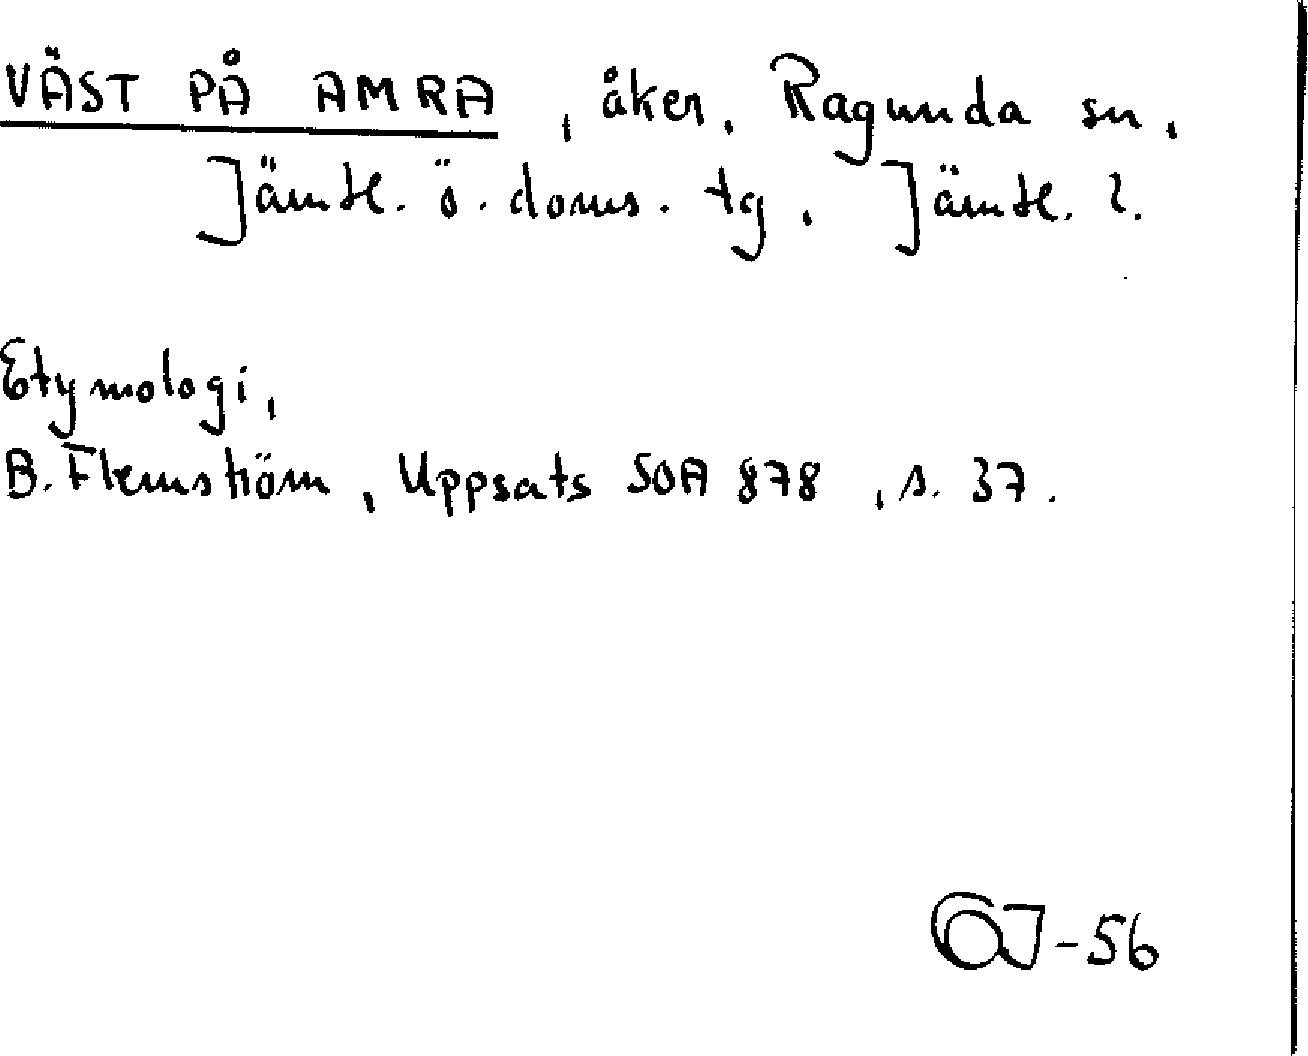 VÄST PÅ AMRA, åker, Ragunda sn,
Jämtl. ö. doms. tg, Jämtl. l.
Etymologi,
B. Flemström, Uppsats SOA 878, s. 37.
-56